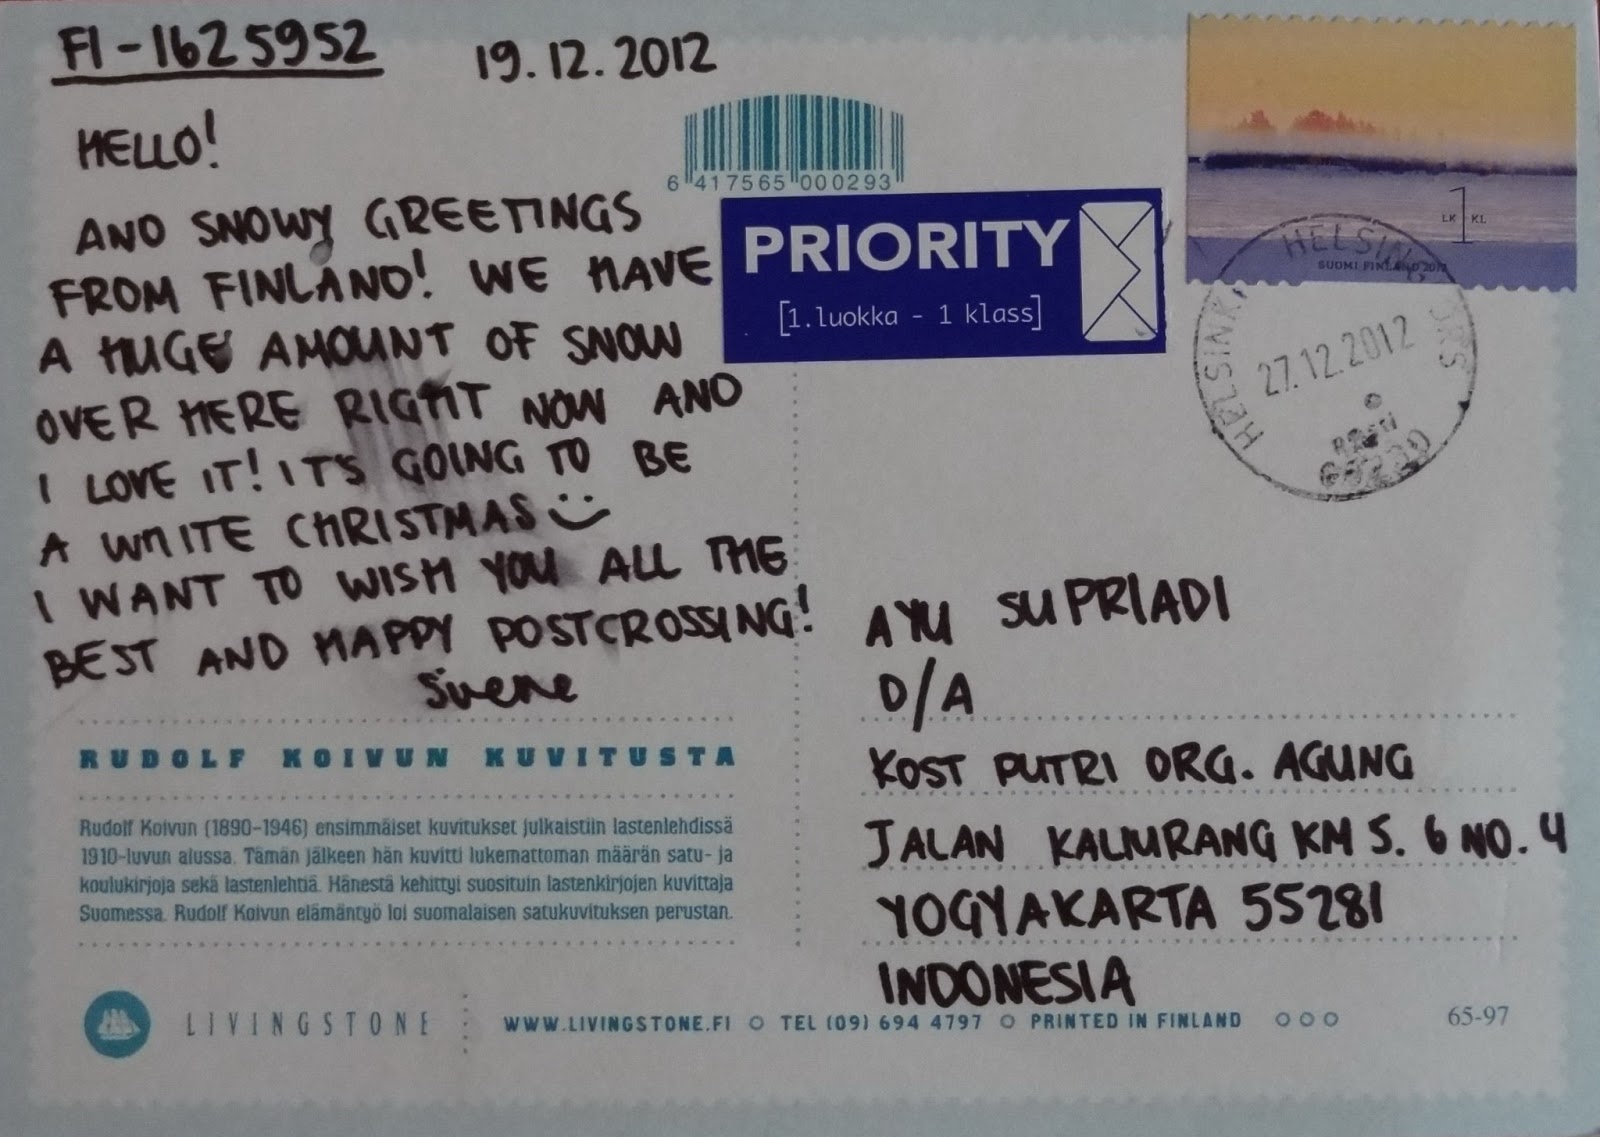 FI-1625952
19.12.2012
HELLO!
AND SNOWY GREETINGS
FROM FINLAND! WE HAVE
A HUGE AMOUNT OF SNOW
OVER HERE RIGHT NOW AND
I LOVE IT! IT'S GOING TO BE
A WHITE CHRISTMAS
I WANT TO WISH YOU ALL THE
BEST AND HAPPY POSTCROSSING!
6 417565 000293
PRIORITY
[1.luokka - 1 klass]
1
LK KL
SUOMI FINLAND 2012
HELSINKI HELSINGFORS
27.12.2012
AYU SUPRIADI
D/A
KOST PUTRI ORG. AGUNG
JALAN KALIURANG KM 5. 6 NO. 4
YOGYAKARTA 55281
INDONESIA
RUDOLF KOIVUN KUVITUSTA
Rudolf Koivun (1890-1946) ensimmäiset kuvitukset julkaistiin lastenlehdissä
1910-luvun alussa. Tämän jälkeen hän kuvitti lukemattoman määrän satu- ja
koulukirjoja sekä lastenlehtiä. Hänestä kehittyi suosituin lastenkirjojen kuvittaja
Suomessa. Rudolf Koivun elämäntyö loi suomalaisen satukuvituksen perustan.
LIVINGSTONE
WWW.LIVINGSTONE.FI O TEL (09) 694 4797 O PRINTED IN FINLAND O O O
65-97